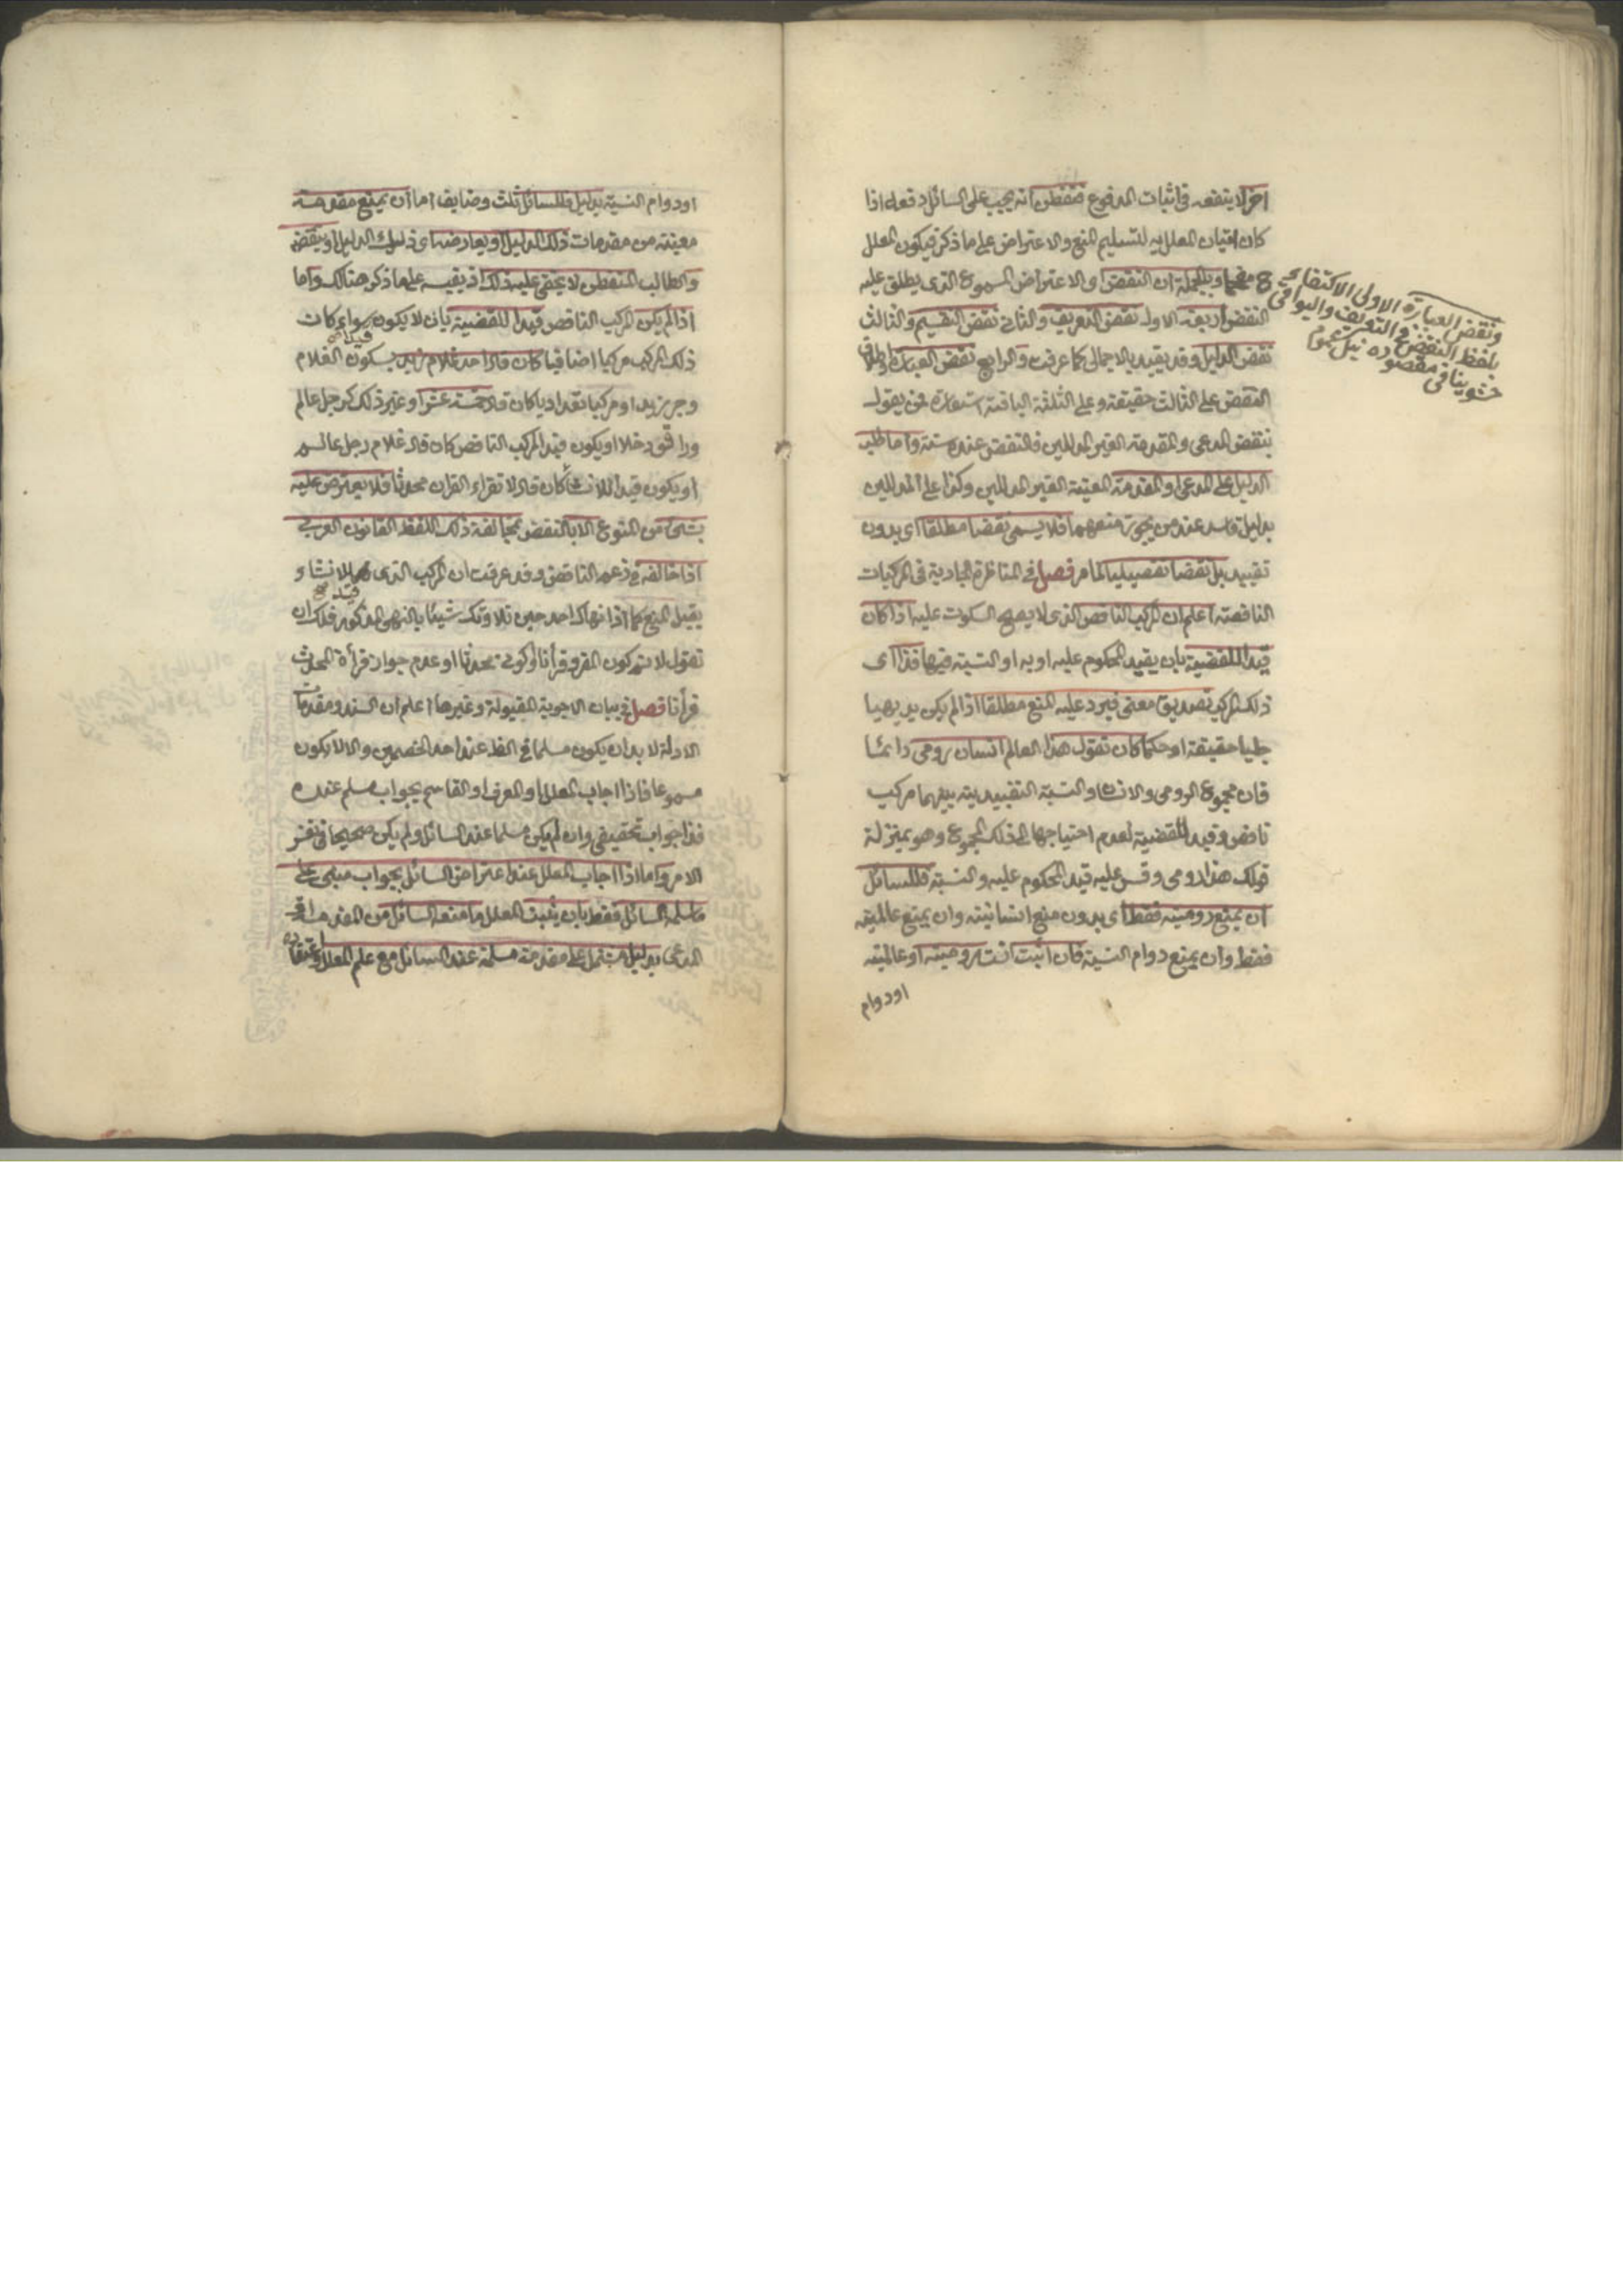 اخر لا ينفعه في اثبات المدفوع فتفطن انه يجب على السائل دفعه اذا
كان اتيان المعلل به لتسليم المنع والاعتراض على ما ذكر فيكون المعلل
مفحما وبالجملة ان النقض والاعتراض المسموع الذي يطلق عليه
النقض اربعة الاول نقض التعريف والثاني نقض التقسيم والثالث
نقض الدليل وقد يقيد بالاجمالي كما عرفت والرابع نقض العبارة واطلاق
النقض على الثالث حقيقة وعلى الثلثة الباقية استعارة فمن يقول
بنقض المدعى والمقدمة الغير المدللين فالنقض عنده ستة واما طلب
الدليل على المدعى او المقدمة المعينة الغير المدللين وكذا على المدللين
بدليل فاسد عند من يجوز منعهما فلا يسمى نقضا مطلقا اى بدون
تقييد بل نقضا تفصيليا لما مر فصل في المناظرة الجارية في المركبات
الناقصة اعلم ان المركب الناقص الذي لا يصح السكوت عليه اذا كان
قيدا للقضية بان يقيد المحكوم عليه او به او النسبة فيها فذا اى
ذلك المركب تصديق معنى فيرد عليه المنع مطلقا اذا لم يكن بديهيا
جليا حقيقة او حكما كان تقول هذا العالم انسان رومى دائما
فان مجموع الرومى والانسان والنسبة التقييدية بينهما مركب
ناقص وقيد للقضية لعدم احتياجها الى ذلك المجموع وهو بمنزلة
قولك هذا رومى وقس عليه قيد المحكوم عليه والنسبة فللسائل
ان يمنع روميته فقط اى بدون منع انسانيته وان يمنع عالميته
فقط وان يمنع دوام النسبة فان اثبت انت روميته او عالميته
او دوام
ونقض العبارة الاولى الاكتفاء
بلفظ النقض والتعريف والبواقي
مقصوده
او دوام النسبة بدليل فللسائل ثلث وضايف اما ان يمنع مقدمة
معينة من مقدمات ذلك الدليل او يعارضه اى ذلك الدليل او ينقض
والطالب المتفطن لا يخفى عليه ذلك اذ يقيسه على ما ذكر هنالك واما
اذا لم يكن المركب الناقص قيدا للقضية بان لا يكون قيدا سواء كان
ذلك المركب مركبا اضافيا كان قال احد غلام زيد بسكون الغلام
وجر زيد او مركبا تعداديا كان قال خمسة عشر او غير ذلك كرجل عالم
او يكون قيد المركب الناقص كان قال غلام رجل عالم
او يكون قيدا للانشاء كان قال لا تقراء القران محدثا فلا يعترض عليه
بشئ من المنوع الا بالنقض بمخالفة ذلك اللفظ القانون العربى
اذا خالفه في زعم الناقض وقد عرفت ان المركب الذى قيد للانشاء
يقبل المنع كما اذا نهاك احد حين تلاوتك شيئا بالنهى المذكور فلك ان
تقول لا نم كون المقروء قرأنا او كونى محدثا او عدم جواز قرأة المحدث
قرأنا فصل في بيان الاجوبة المقبولة وغيرها اعلم ان السند ومقدمات
الادلة لا بد ان يكون مسلما في الظ عند احد الخصمين والا لا يكون
مسموعا فاذا اجاب المعلل او المعرف او القاسم بجواب مسلم عنده
فذا جواب تحقيقى وان لم يكن مسلما عند السائل ولم يكن صحيحا في نفس
الامر واما اذا اجاب المعلل عند اعتراض السائل بجواب مبنى على
ما سلمه السائل فقط بان يثبت المعلل ما منعه السائل من المقدمة او
المدعى بدليل مشتمل على مقدمة مسلمة عند السائل مع علم المعلل واعتقاده